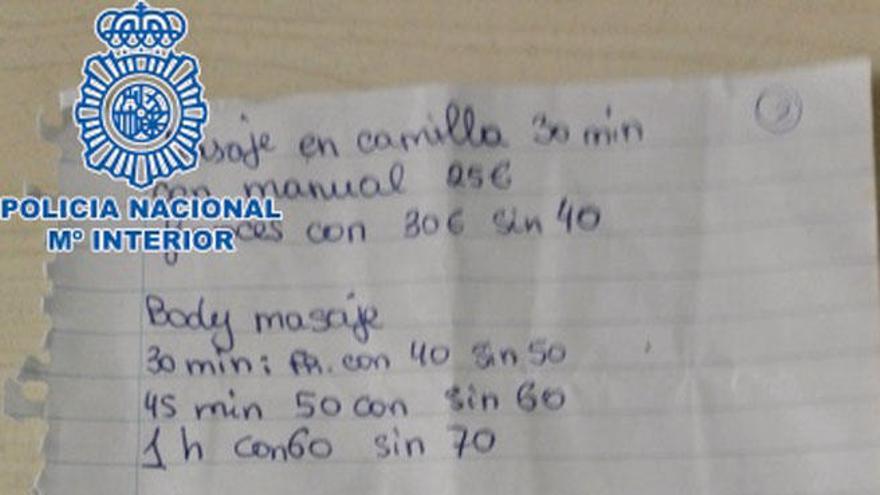 POLICIA NACIONAL
Mº INTERIOR
en camilla 30 min
manual 25€
con 30€ sin 40
Body masaje
30 min: FR. con 40 sin 50
45 min 50 con sin 60
1 h con60 sin 70